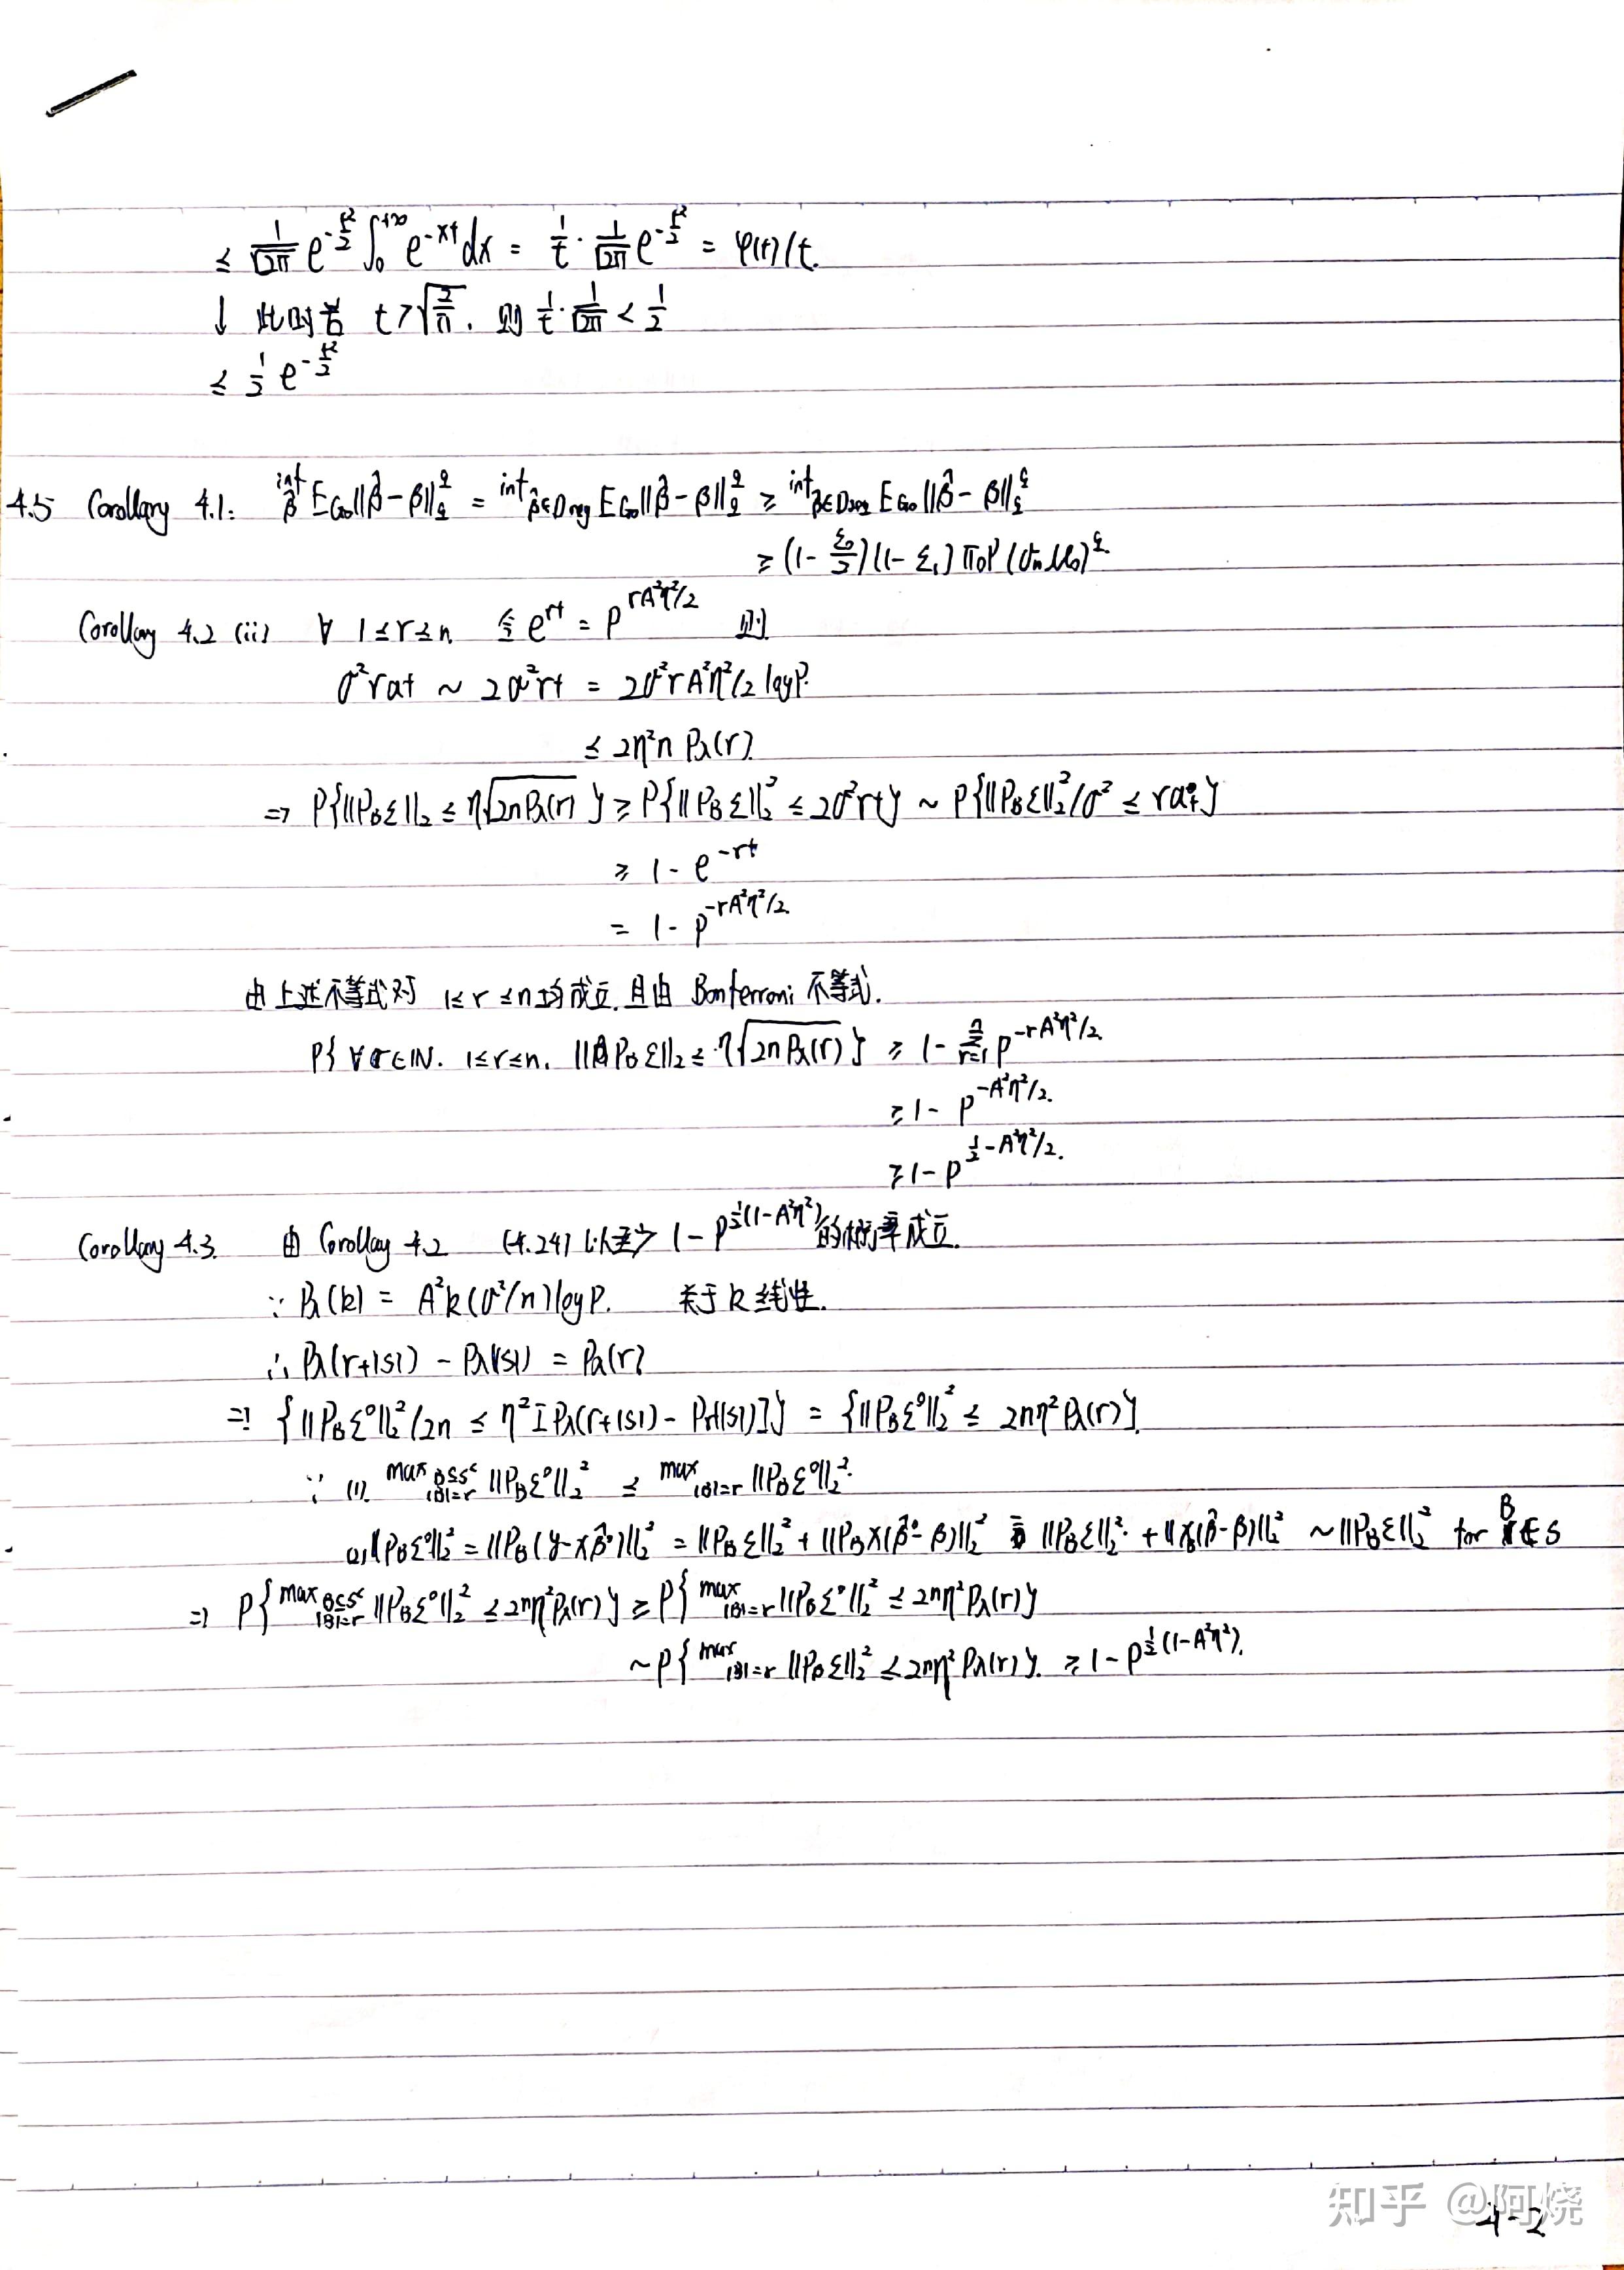 ≤ 1/√(2π) e^{-t²/2} ∫₀^{+∞} e^{-xt} dx = 1/t · 1/√(2π) e^{-t²/2} = φ(t)/t.
↓ 此时若 t > √(2/π), 则 1/t · 1/√(2π) < 1/2
≤ 1/2 e^{-t²/2}
4.5 Corollary 4.1: inf_{β̂} E_{G₀}||β̂ - β||_q^q = inf_{β̂∈D} E_{G₀}||β̂ - β||_q^q ≥ inf_{β̂∈D} E_{G₀}||β̂ - β||_q^q
≥ (1 - ε₀/2)(1 - ε₁) π₀p (σₙμ₀)^q.
Corollary 4.2 (ii) ∀ 1≤r≤n 令 e^{rt} = p^{rA²η²/2} 则
σ²rat ~ 2σ²rt = 2σ²rA²η²/2 logp.
≤ 2η²n Pλ(r).
⇒ P{||P_B ε||₂ ≤ η√(2nPλ(r))} ≥ P{||P_B ε||₂² ≤ 2σ²rt} ~ P{||P_B ε||₂²/σ² ≤ ra_t}
≥ 1 - e^{-rt}
= 1 - p^{-rA²η²/2}
由上述不等式对 1≤r≤n均成立.且由 Bonferroni 不等式.
P{∀r∈ℕ. 1≤r≤n, ||P_B ε||₂ ≤ η√(2nPλ(r))} ≥ 1 - Σ_{r=1}^n p^{-rA²η²/2}
≥ 1 - p^{-A²η²/2}.
≥ 1 - p^{1/2-A²η²/2}.
Corollary 4.3. 由 Corollay 4.2 (4.24) 以至少 1 - p^{1/2(1-A²η²)} 的概率成立.
∵ Pλ(k) = A²k(σ²/n)logp. 关于k线性.
∴ Pλ(r+|s|) - Pλ(|s|) = Pλ(r)
⇒ {||P_B ε°||₂²/2n ≤ η²[Pλ(r+|s|) - Pλ(|s|)]} = {||P_B ε°||₂² ≤ 2nη²Pλ(r)}.
∵ (1). max_{B⊆S^c, |B|=r} ||P_B ε°||₂² ≤ max_{|B|=r} ||P_B ε°||₂².
(2) ||P_B ε°||₂² = ||P_B(y-Xβ̂°)||₂² = ||P_B ε||₂² + ||P_B X(β̂°-β)||₂² ||P_B ε||₂² + ||X(β̂-β)||₂² ~ ||P_B ε||₂² for B∈S
⇒ P{max_{B⊆S^c, |B|=r} ||P_B ε°||₂² ≤ 2nη²Pλ(r)} ≥ P{max_{|B|=r} ||P_B ε°||₂² ≤ 2nη²Pλ(r)}
~ P{max_{|B|=r} ||P_B ε||₂² ≤ 2nη²Pλ(r)}. ≥ 1 - p^{1/2(1-A²η²)}.
知乎 @阿烧
4-2